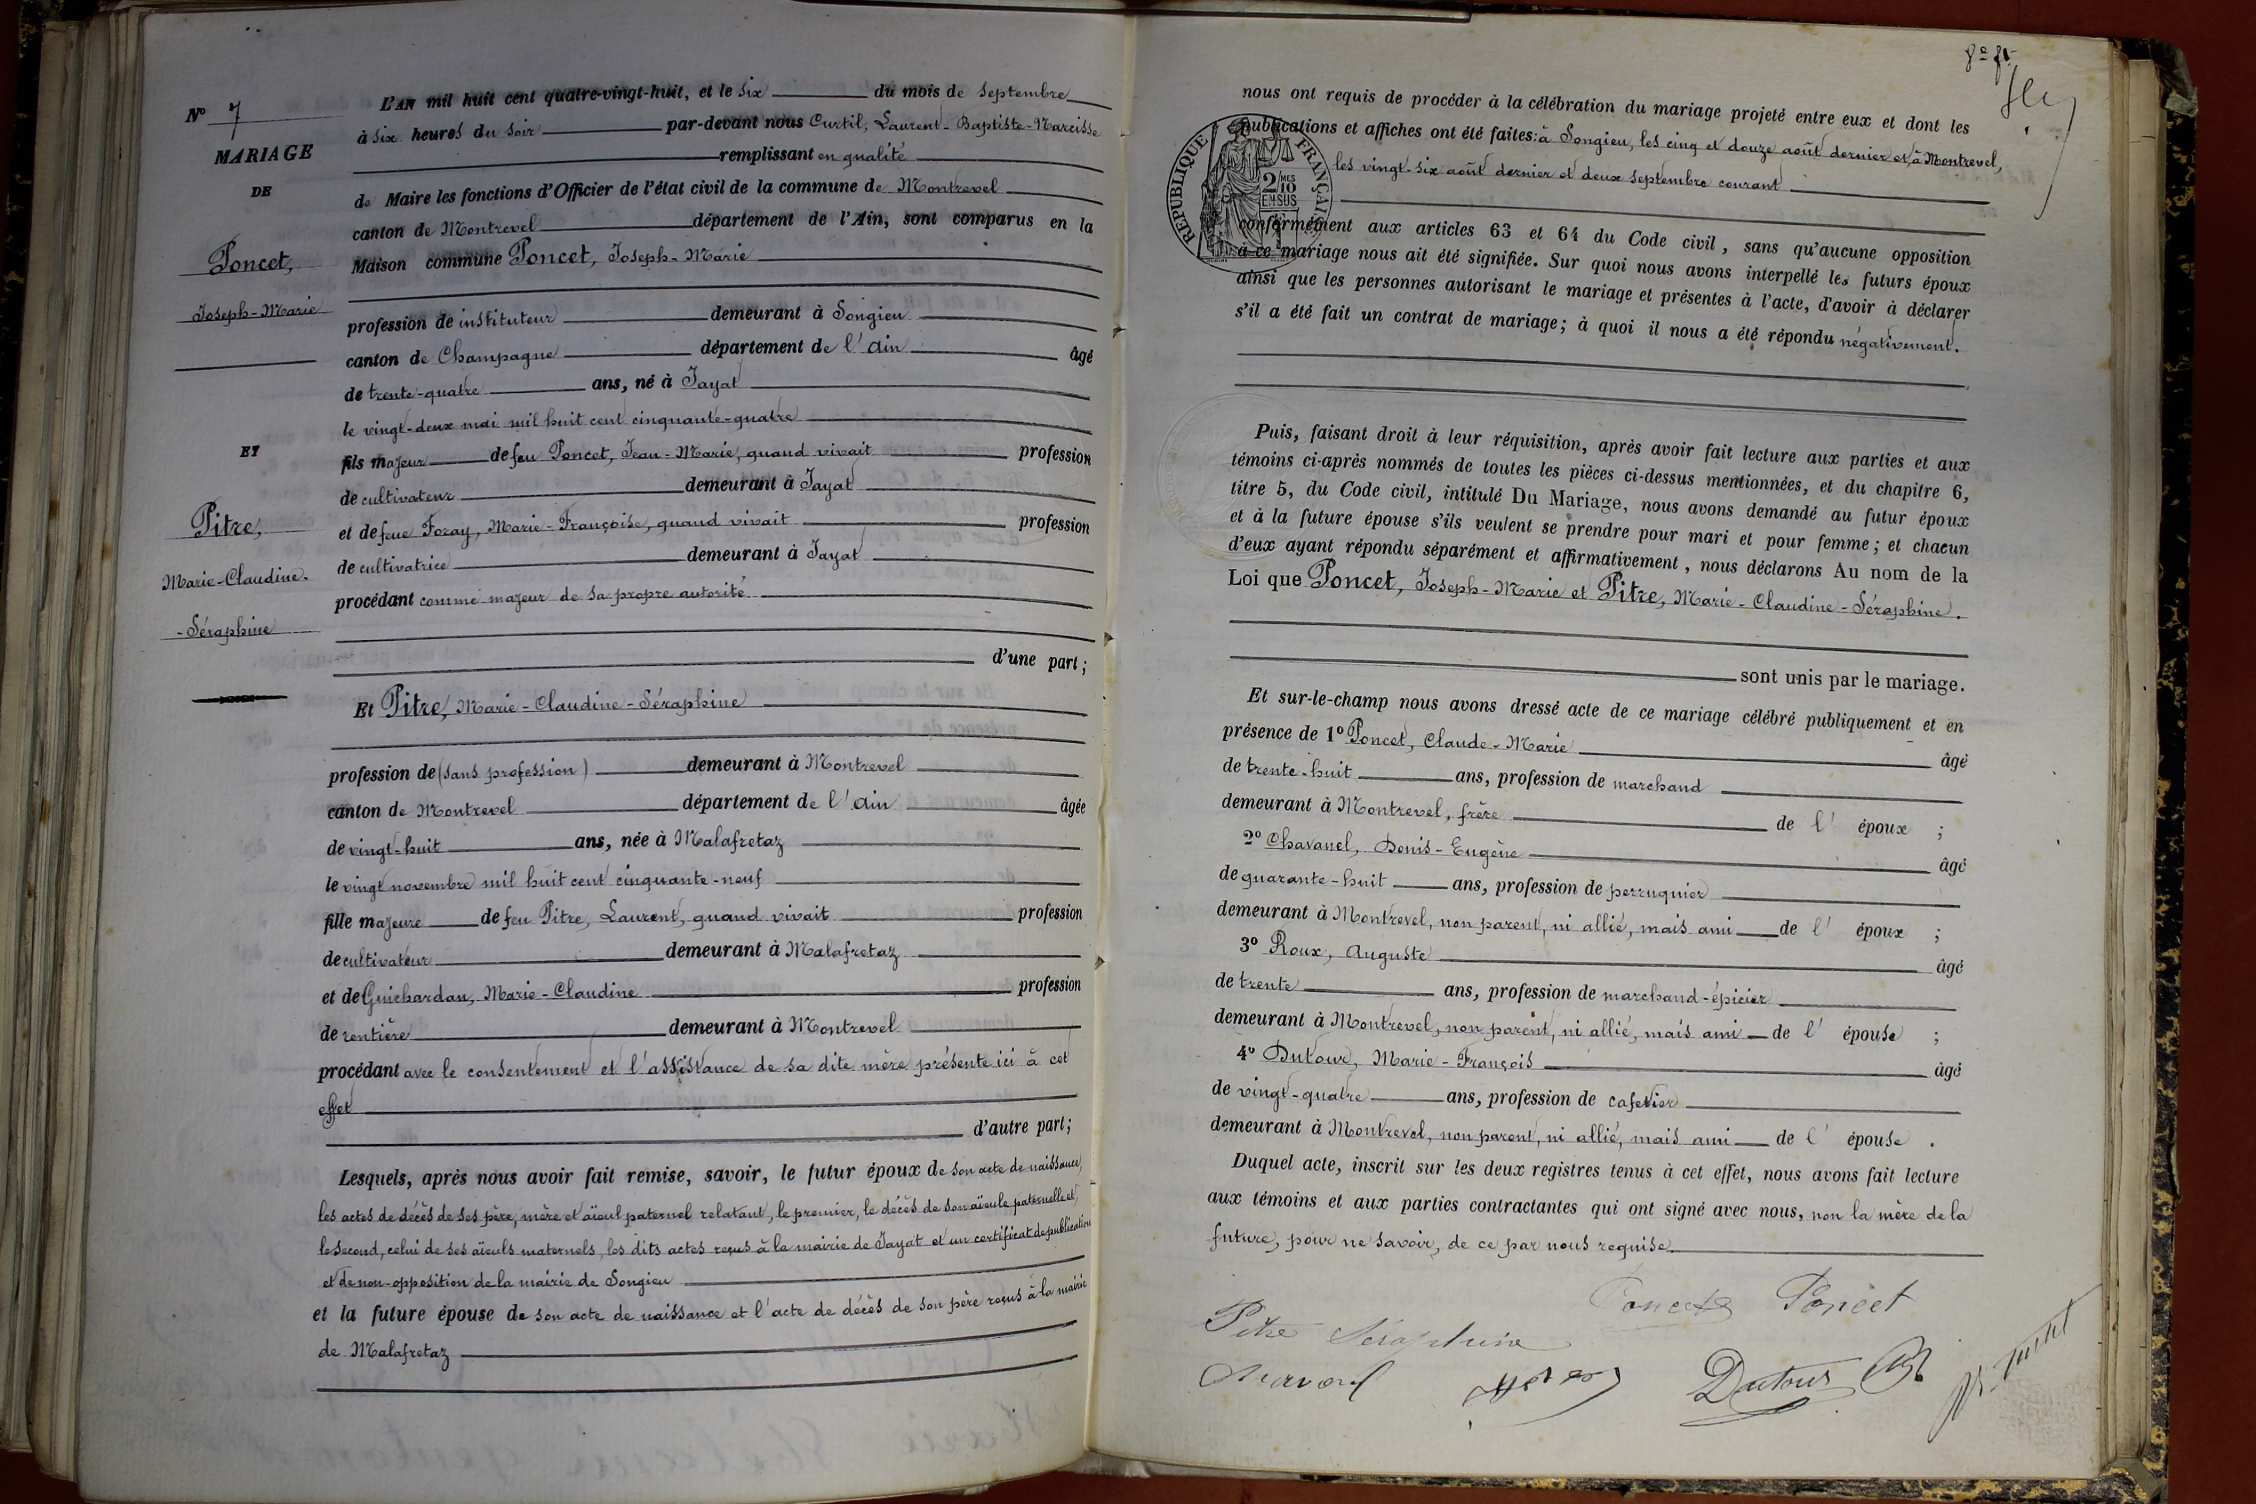 N° 7
MARIAGE
DE
Poncet,
Joseph-Marie
ET
Pitre,
Marie-Claudine-
-Séraphine
L'AN mil huit cent quatre-vingt-huit, et le six du mois de septembre
à six heures du soir par-devant nous Curtil, Laurent-Baptiste-Narcisse
remplissant en qualité
de Maire les fonctions d'Officier de l'état civil de la commune de Montrevel
canton de Montrevel département de l'Ain, sont comparus en la
Maison commune Poncet, Joseph-Marie
profession de instituteur demeurant à Songieu
canton de Champagne département de l'Ain âgé
de trente-quatre ans, né à Jayat
le vingt-deux mai mil huit cent cinquante-quatre
fils majeur de feu Poncet, Jean-Marie, quand vivait profession
de cultivateur demeurant à Jayat
et de feue Foray, Marie-Françoise, quand vivait profession
de cultivatrice demeurant à Jayat
procédant comme majeur de sa propre autorité
d'une part;
Et Pitre, Marie-Claudine-Séraphine
profession de (sans profession) demeurant à Montrevel
canton de Montrevel département de l'Ain âgée
de vingt-huit ans, née à Malafretaz
le vingt novembre mil huit cent cinquante-neuf
fille majeure de feu Pitre, Laurent, quand vivait profession
de cultivateur demeurant à Malafretaz
et de Guichardan, Marie-Claudine profession
de rentière demeurant à Montrevel
procédant avec le consentement et l'assistance de sa dite mère présente ici à cet
effet
d'autre part;
Lesquels, après nous avoir fait remise, savoir, le futur époux de son acte de naissance,
les actes de décès de ses père, mère et aïeul paternel relatant, le premier, le décès de son aïeule paternelle et
le second, celui de ses aïeuls maternels, les dits actes reçus à la mairie de Jayat et un certificat de publication
et de non-opposition de la mairie de Songieu
et la future épouse de son acte de naissance et l'acte de décès de son père reçus à la mairie
de Malafretaz
8e ft
nous ont requis de procéder à la célébration du mariage projeté entre eux et dont les
publications et affiches ont été faites: à Songieu, les cinq et douze août dernier et à Montrevel,
les vingt-six août dernier et deux septembre courant
RÉPUBLIQUE FRANÇAISE
2/10 EN SUS
conformément aux articles 63 et 64 du Code civil, sans qu'aucune opposition
à ce mariage nous ait été signifiée. Sur quoi nous avons interpellé les futurs époux
ainsi que les personnes autorisant le mariage et présentes à l'acte, d'avoir à déclarer
s'il a été fait un contrat de mariage; à quoi il nous a été répondu négativement.
Puis, faisant droit à leur réquisition, après avoir fait lecture aux parties et aux
témoins ci-après nommés de toutes les pièces ci-dessus mentionnées, et du chapitre 6,
titre 5, du Code civil, intitulé Du Mariage, nous avons demandé au futur époux
et à la future épouse s'ils veulent se prendre pour mari et pour femme; et chacun
d'eux ayant répondu séparément et affirmativement, nous déclarons Au nom de la
Loi que Poncet, Joseph-Marie et Pitre, Marie-Claudine-Séraphine.
sont unis par le mariage.
Et sur-le-champ nous avons dressé acte de ce mariage célébré publiquement et en
présence de 1° Poncet, Claude-Marie âgé
de trente-huit ans, profession de marchand
demeurant à Montrevel, frère de l'époux ;
2° Chavanel, Denis-Eugène âgé
de quarante-huit ans, profession de perruquier
demeurant à Montrevel, non parent, ni allié, mais ami de l'époux ;
3° Roux, Auguste âgé
de trente ans, profession de marchand-épicier
demeurant à Montrevel, non parent, ni allié, mais ami de l'épouse ;
4° Dutour, Marie-François âgé
de vingt-quatre ans, profession de cafetier
demeurant à Montrevel, non parent, ni allié, mais ami de l'épouse .
Duquel acte, inscrit sur les deux registres tenus à cet effet, nous avons fait lecture
aux témoins et aux parties contractantes qui ont signé avec nous, non la mère de la
future, pour ne savoir, de ce par nous requise.
Poncet Poncet
Pitre Séraphine
Dutour